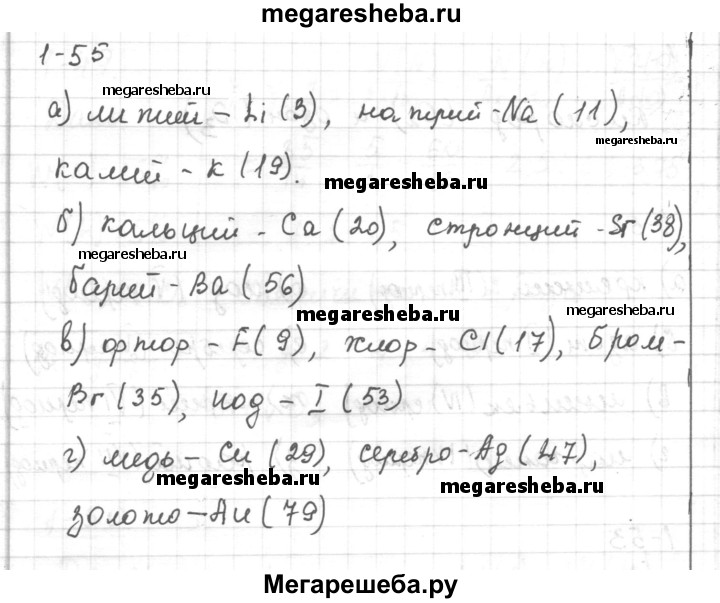 megaresheba.ru
1-55
megaresheba.ru
а) литий - Li (3), натрий - Na (11),
megaresheba.ru
калий - K (19).
megaresheba.ru
б) кальций - Ca (20), стронций - Sr (38),
megaresheba.ru
барий - Ba (56)
megaresheba.ru
в) фтор - F (9), хлор - Cl (17), бром -
megaresheba.ru
Br (35), иод - I (53)
г) медь - Cu (29), серебро - Ag (47),
megaresheba.ru
megaresheba.ru
золото - Au (79)
Мегарешеба.ру